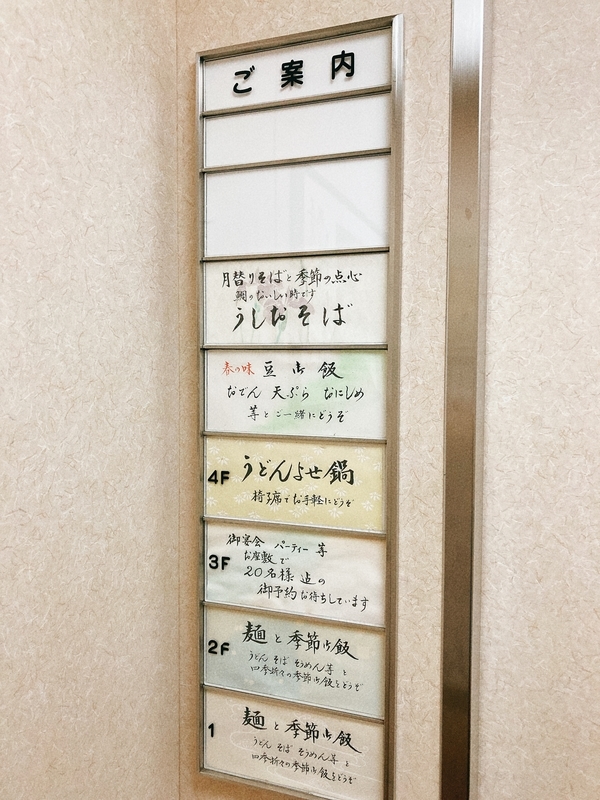 ご案内
月替りそばと季節の点心
鯛のおいしい時です
うしおそば
春の味 豆御飯
おでん 天ぷら おにしめ
等とご一緒にどうぞ
4F うどんよせ鍋
椅子席でお手軽にどうぞ
御宴会 パーティー 等
お座敷で
3F 20名様迄の
御予約お待ちしています
2F 麺と季節御飯
うどん そば そうめん等と
四季折々の季節御飯をどうぞ
1 麺と季節御飯
うどん そば そうめん等と
四季折々の季節御飯をどうぞ